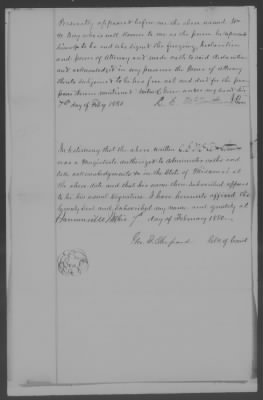 Personally appeared before me the above named Wm
H. Ray who is well known to me as the person he represents
himself to be and who signed the foregoing Declaration
and power of Attorney and made oath to said declaration
and acknowledged in my presence the Power of Attorney
thereto subscribed to be his free act and deed for the pur-
poses therein mentioned. Witness my hand this
7th day of Feby 1880.
I Certify that the above written
was a Magistrate authorized to administer oaths and
take acknowledgments in the State of Missouri at
the above date and that his name there subscribed appears
to be his usual signature. I have hereunto affixed the
County Seal and subscribed my name and quality at
day of February 1880.
Geo. D. Shepard Clk of Court